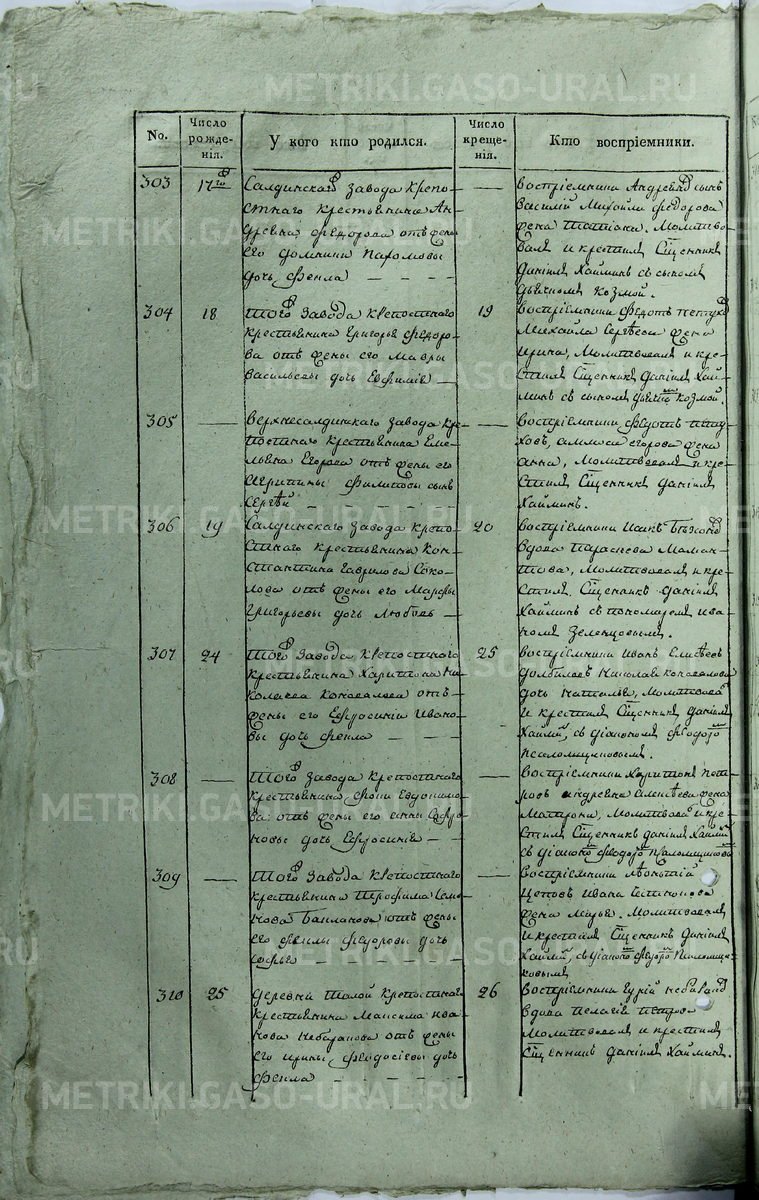 METRIKI.GASO-URAL.RU
No.
Число рожде-
нія.
У кого кто родился.
Число креще-
нія.
Кто воспріемники.
303
17го
Салдинскаго завода крепо-
стнаго крестьянина Ан-
дреяна Федорова отъ жены
его Домнины Пахомовы
дочь Фекла
Воспріемники Андреянъ сынъ
Василій Михайла Федорова
жена Татіана. Молитво-
валъ и крестилъ Сщенникъ
Даніилъ Хайминъ съ сыномъ
дьячкомъ Козмой.
304
18
Того завода крепостнаго
крестьянина Григорья Федоро-
ва отъ жены его Мавры
Васильевы дочь Евфимія
19
Воспріемники Федотъ Петухъ
Михайла Сергѣева жена
Ирина, Молитвовалъ и кре-
стилъ Сщенникъ Даніилъ Хай-
минъ съ сыномъ Козмой.
305
Верхнесалдинскаго завода кре-
постнаго крестьянина Еме-
льяна Егорова отъ жены его
Агрипины Филиповы сынъ
Сергѣй
Воспріемники Федотъ Пету-
ховъ, Егорова жена
Анна, Молитвовалъ и кре-
стилъ Сщенникъ Даніилъ
Хайминъ.
306
19
Салдинскаго завода крепо-
стнаго крестьянина Кон-
стантина Гаврилова Соко-
лова отъ жены его Марфы
Григорьевы дочь Любовь
20
Воспріемники Исакъ
вдова Параскева Маман-
това, Молитвовалъ и кре-
стилъ Сщенникъ Даніилъ
Хайминъ съ пономаремъ Ива-
номъ Зеленцовымъ.
307
24
Того завода крепостнаго
крестьянина Харитона Ни-
колаева Коновалова отъ
жены его Ефросиніи Ивано-
вы дочь Фекла
25
Воспріемники Иванъ Елисѣевъ
Долбиловъ Николая Коновалова
дочь Наталья, Молитвовалъ
и крестилъ Сщенникъ Даніилъ
Хайминъ, съ діакономъ Феодоромъ
Псаломщиковымъ.
308
Того завода крепостнаго
крестьянина Фоки Евдокимо-
ва отъ жены его Анны Софро-
новы дочь Ефросинія
Воспріемники Харитонъ Пет-
ровъ Андреяна Алексѣева жена
Матрона, Молитвовалъ и кре-
стилъ Сщенникъ Даніилъ Хайминъ
съ діакономъ Феодоромъ Псаломщиковымъ
309
Того завода крепостнаго
крестьянина Трофима Семе-
нова Бакланова отъ жены
его Феклы Федоровы дочь
Софья
Воспріемники Леонтій
Цеповъ Ивана
жена Марья. Молитвовалъ
и крестилъ Сщенникъ Даніилъ
Хайминъ, съ діакономъ Федоромъ Псаломщи-
ковымъ
310
25
Деревни Талой крепостнаго
крестьянина Максима Ива-
нова Небаранова отъ жены
его Ирины Федосіевы дочь
Фекла
26
Воспріемники Гурій
вдова Пелагія Петрова
Молитвовалъ и крестилъ
Сщенникъ Даніилъ Хайминъ.